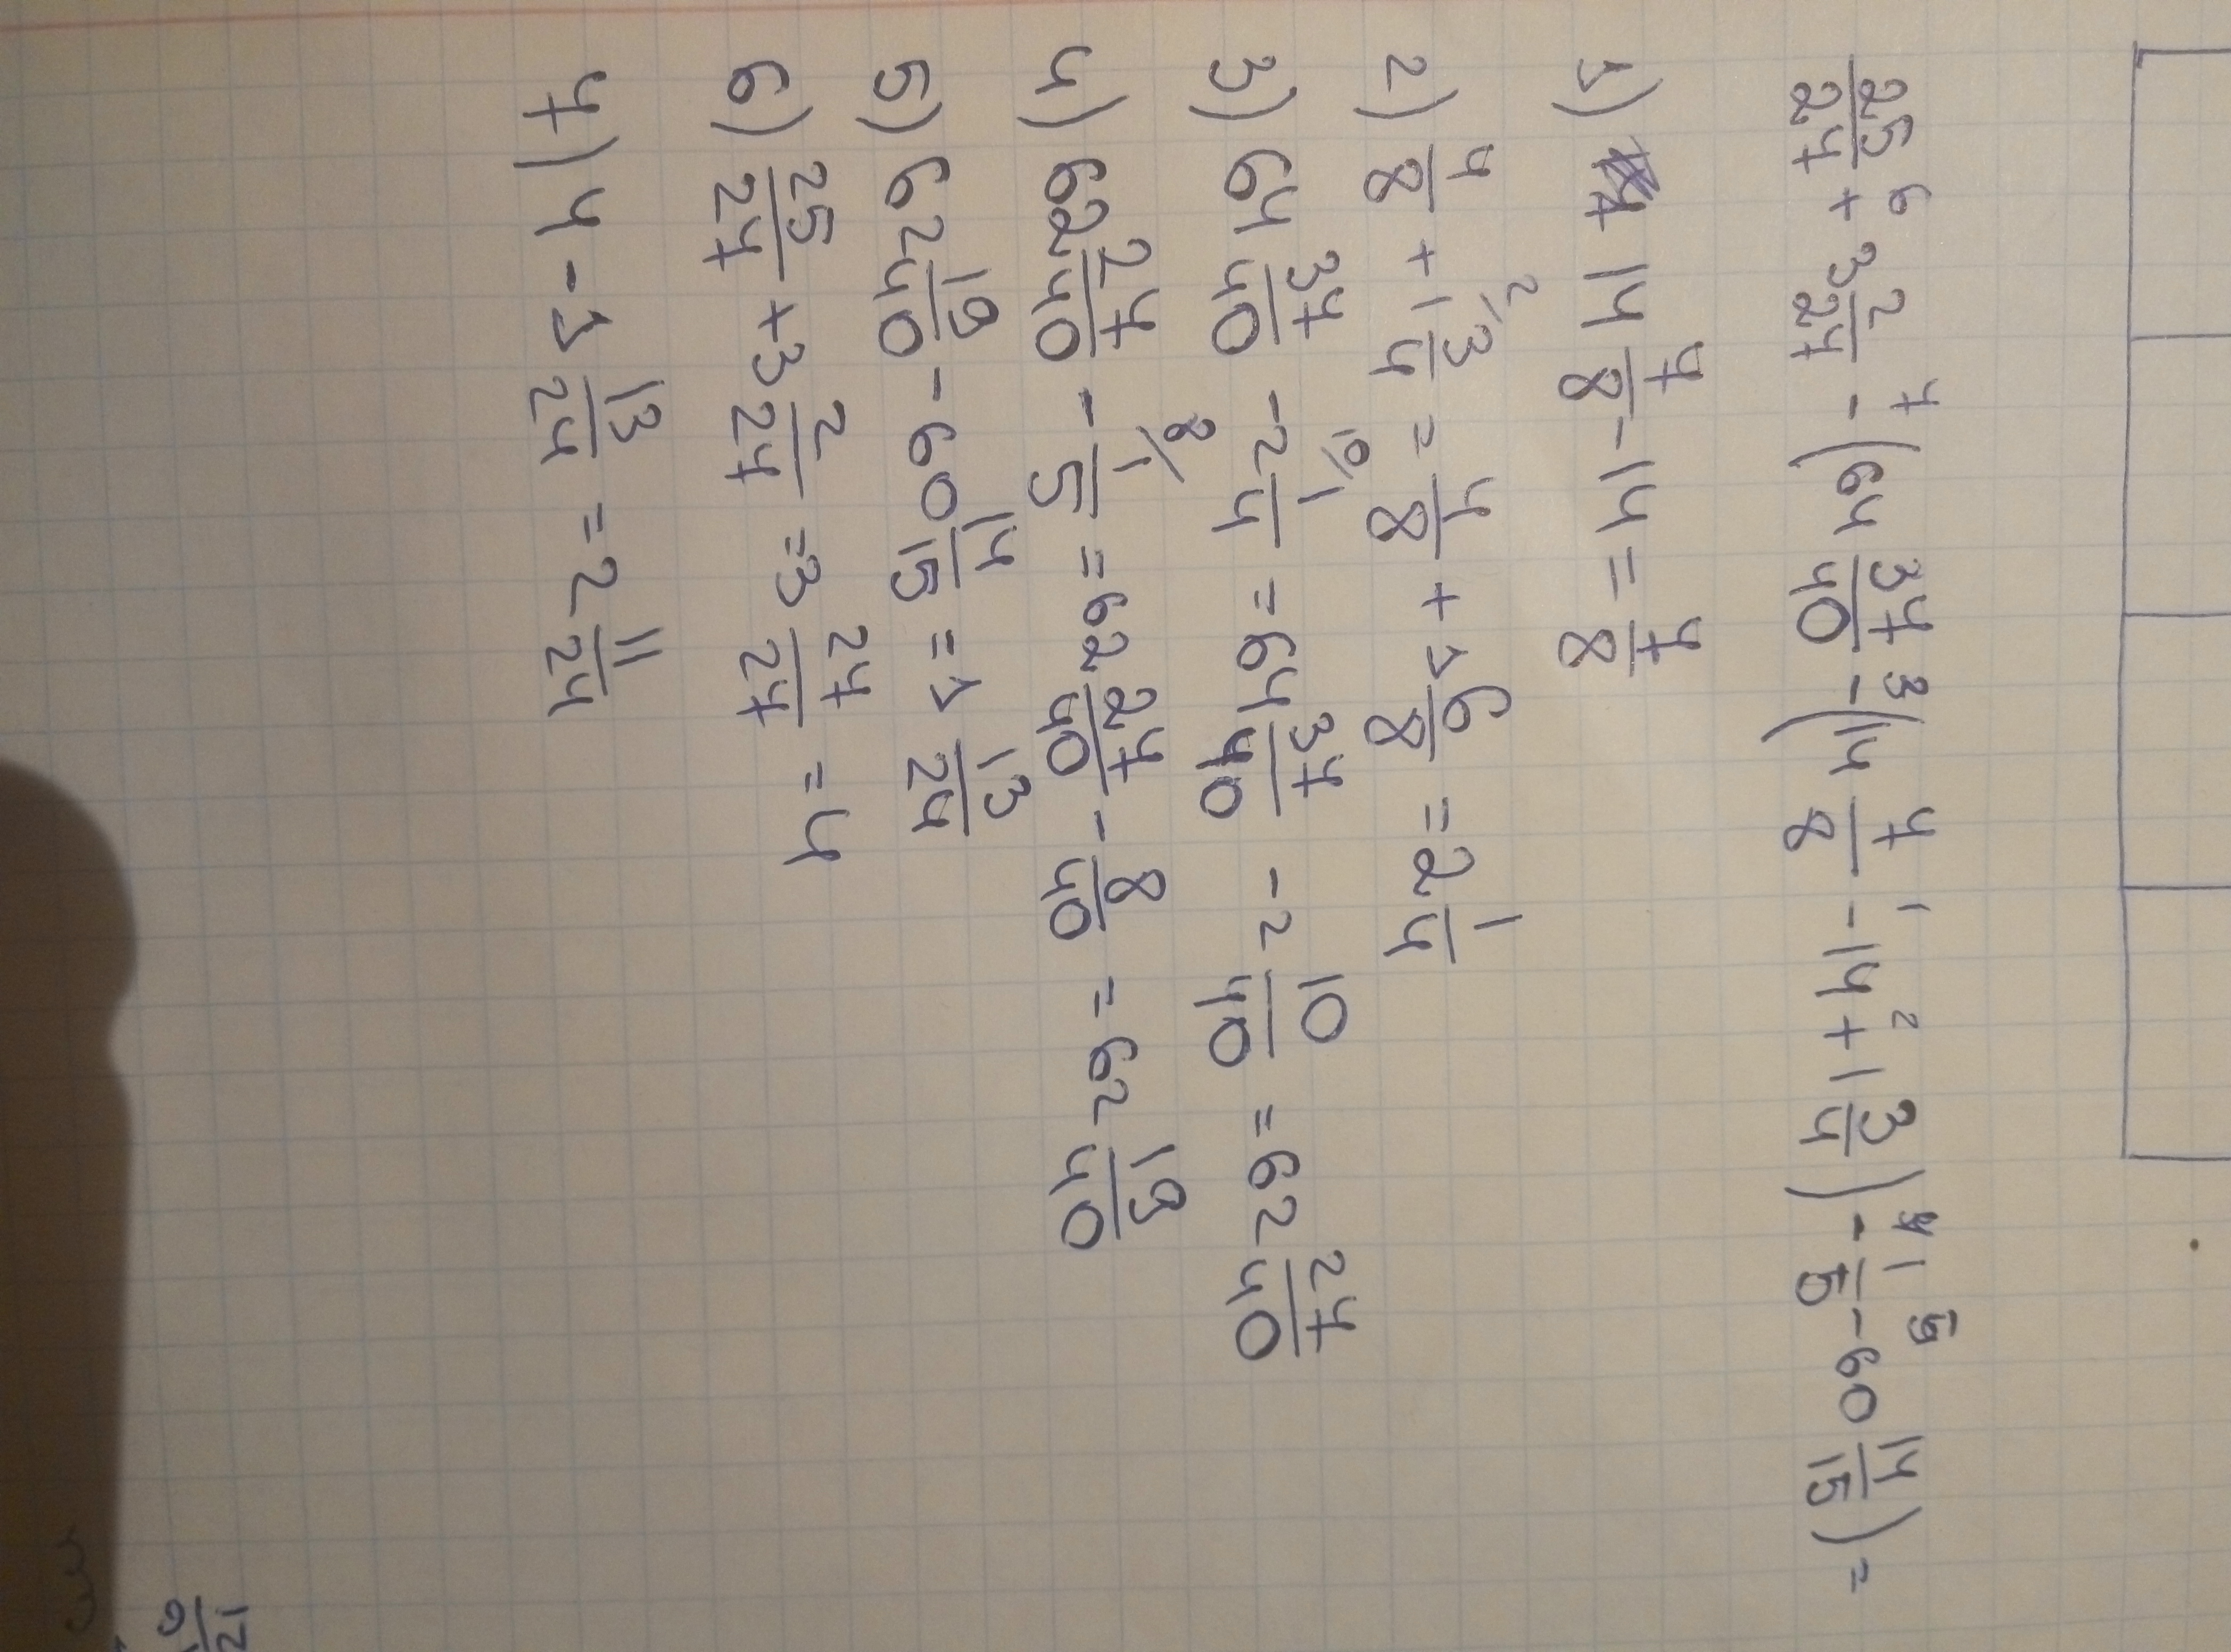 6 7 3 1 2 4 5
25/27 + 3 2/27 - (64 37/40 - (14 7/8 - 14 + 1 3/4) - 1/5 - 60 14/15) =
1) 14 7/8 - 14 = 7/8
2) 4/8 + 1 2/3/4 = 4/8 + 1 6/8 = 2 1/4
3) 64 37/40 - 2 10/1/4 = 64 37/40 - 2 10/40 = 62 27/40
4) 62 27/40 - 8/1/5 = 62 27/40 - 8/40 = 62 19/40
5) 62 19/40 - 60 14/15 = 1 13/24
6) 25/27 + 3 2/27 = 3 27/27 = 4
7) 4 - 1 13/24 = 2 11/24